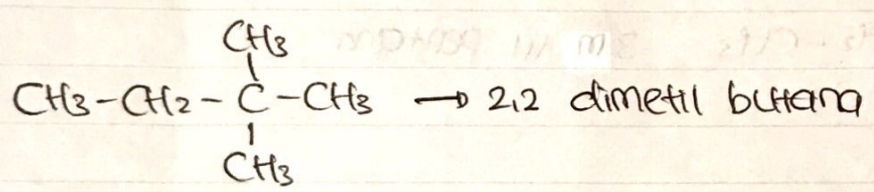 CH3
CH3-CH2-C-CH3 → 2,2 dimetil butana
CH3